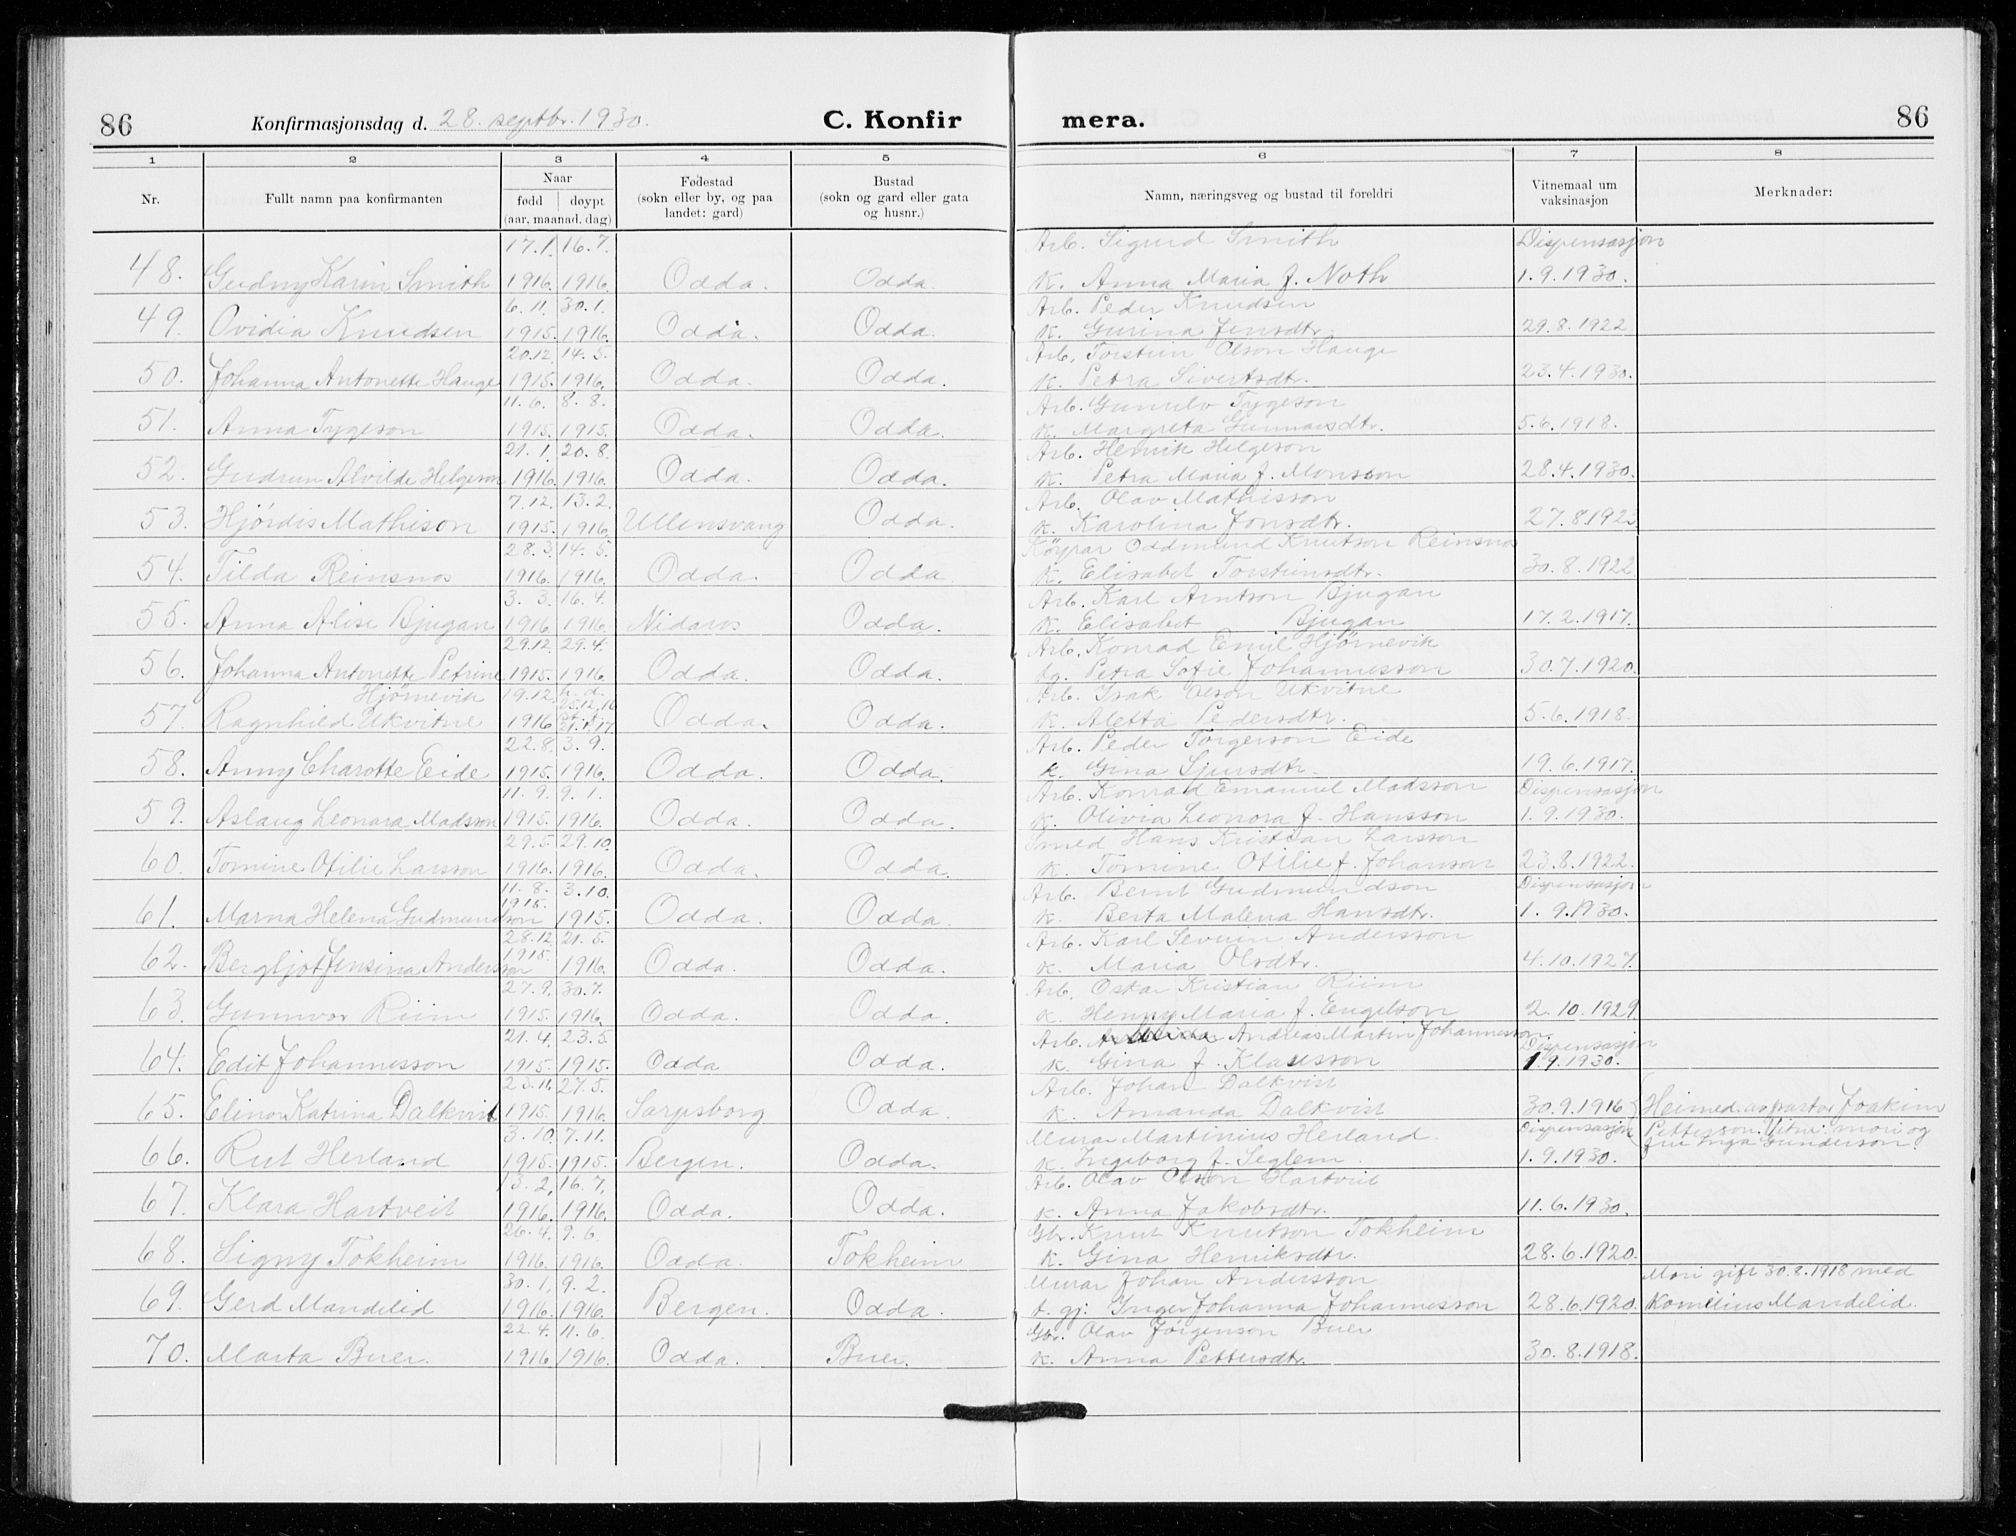 86
Konfirmasjonsdag d. 28. septbr. 1930.
C. Konfir
mera.
86
1 2 3 4 5 6 7 8
Nr.
Fullt namn paa konfirmanten
Naar
fødd døypt
(aar, maanad, dag)
Fødestad
(sokn eller by, og paa
landet: gard)
Bustad
(sokn og gard eller gata
og husnr.)
Namn, næringsveg og bustad til foreldri
Vitnemaal um
vaksinasjon
Merknader:
17.1. 16.7. Arb. Sigurd Smith Dispensasjon
48. Gudny Karin Smith 1916. 1916. Odda. Odda. K. Anna Maria f. Noth 1.9.1930.
6.11. 30.1. Arb. Peder Knudsen
49. Ovidia Knudsen 1915. 1916. Odda. Odda. K. Gurina Jensdtr. 29.8.1922
20.12. 14.5. Arb. Torstein Olson Hauge
50. Johanna Antonette Hauge 1915. 1916. Odda. Odda. K. Petra Sivertsdtr. 23.4.1930.
11.6. 8.8. Arb. Gunulv Tygeson
51. Anna Tygeson 1915. 1915. Odda. Odda. K. Margreta Gunnarsdtr. 5.6.1918.
21.1. 20.8. Arb. Henrik Helgeson
52. Gudrun Alvilde Helgeson 1916. 1916. Odda. Odda. K. Petra Maria f. Monsson 28.4.1930.
7.12. 13.2. Arb. Olav Mathisson
53. Hjørdis Mathison 1915. 1916. Ullensvang Odda. K. Karolina Jonsdtr. 27.8.1922
28.3. 14.5. Køyrar Oddmund Knutson Reinsnos
54. Tilda Reinsnos 1916. 1916. Odda. Odda. K. Elisabet Torsteinsdtr. 30.8.1922
3.3. 16.4. Arb. Karl Arntson Bjugan
55. Anna Alise Bjugan 1916. 1916. Nidaros Odda. K. Elisabet Bjugan 17.2.1917.
29.12. 29.4. Arb. Konrad Emil Hjørnevik
56. Johanna Antonette Petrine 1915. 1916. Odda. Odda. fg. Petra Sofie Johannesson 30.7.1920.
Hjørnevik 19.12. h.d. Arb. Isak Olson Ukvitne
25.12.16
57. Ragnhild Ukvitne 1916 21.1.17 Odda. Odda. K. Aletta Pedersdtr. 5.6.1918.
22.8. 3.9. Arb. Peder Torgerson Eide
58. Anny Charotte Eide 1915. 1916. Odda. Odda. K. Gina Sjursdtr. 19.6.1917.
11.9. 9.1. Arb. Konrad Emanuel Madsson Dispensasjon
59. Aslaug Leonara Madsson 1915. 1916. Odda. Odda. K. Olivia Leonora f. Hansson 1.9.1930.
29.5. 29.10. Smed Hans Kristian Larsson
60. Tomine Otilie Larsson 1916. 1916. Odda. Odda. K. Tomine Otilie f. Johanson 23.8.1922.
11.8. 3.10. Arb. Bernt Gudmundson Dispensasjon
61. Marna Helena Gudmundson 1915. 1915. Odda. Odda. K. Berta Malena Hansdtr. 1.9.1930.
28.12. 21.5. Arb. Karl Severin Andersson
62. Bergljot Jensina Anderson 1915. 1916. Odda. Odda. K. Maria Olsdtr. 4.10.1927.
27.9. 30.7. Arb. Oskar Kristian Riim
63. Gunnvor Riim 1915. 1916. Odda. Odda. K. Henny Maria f. Engelson 2.10.1929
21.4. 23.5. Arb. Andreas Martin Johannesson Dispensasjon
64. Edit Johannesson 1915. 1915. Odda Odda. K. Gina f. Klausson 1.9.1930.
23.11. 27.5. Arb. Johan Dalkvist
65. Elinor Katrina Dalkvist 1915. 1916. Sarpsborg Odda. K. Amanda Dalkvist 30.9.1916 Heimed. av pastor Joakim
3.10. 7.11. Murar Martinius Herland. Dispensasjon Petterson. Vitni: mori og
66. Rut Herland 1915. 1915. Bergen. Odda. K. Ingeborg f. Seglem. 1.9.1930. fru Inga Gunderson.
13.2. 16.7. Arb. Olav Olson Hartveit
67. Klara Hartveit 1916. 1916. Odda. Odda. K. Anna Jakobsdtr. 11.6.1930.
26.4. 9.6. Gbr. Knut Knutson Tokheim
68. Signy Tokheim 1916. 1916. Odda. Tokheim K. Gina Henriksdtr. 28.6.1920.
30.1. 9.2. Murar Johan Andersson Mori gift 30.8.1918 med
69. Gerd Mandelid 1916. 1916. Bergen. Odda. t. gj: Inger Johanna Johannesson 28.6.1920. Kornelius Mandelid.
22.4. 11.6. Gbr. Olav Jørgenson Buer
70. Marta Buer. 1916 1916. Odda. Buer. K. Anna Pettersdtr. 30.8.1918.